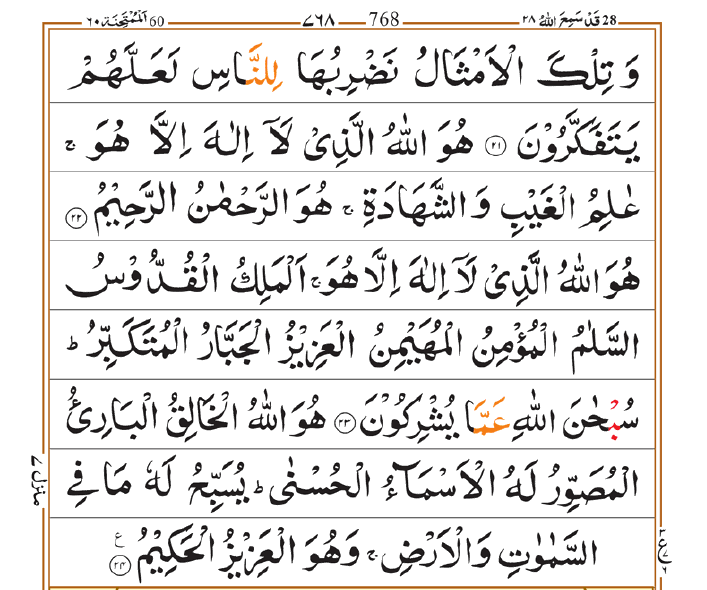 28 قَدۡ سَمِعَ اللّٰهُ ٢٨ 768 ٧٦٨ 60 اَلۡمُمۡتَحِنَة ٦٠
وَ تِلْكَ الْاَمْثَالُ نَضْرِبُهَا لِلنَّاسِ لَعَلَّهُمْ
يَتَفَكَّرُوْنَ ﴿۲۱﴾ هُوَ اللّٰهُ الَّذِىْ لَاۤ اِلٰهَ اِلَّا هُوَ ۚ
عٰلِمُ الْغَيْبِ وَالشَّهَادَةِ ۚ هُوَ الرَّحْمٰنُ الرَّحِيْمُ ﴿۲۲﴾
هُوَ اللّٰهُ الَّذِىْ لَاۤ اِلٰهَ اِلَّا هُوَ ۚ اَلْمَلِكُ الْقُدُّوْسُ
السَّلٰمُ الْمُؤْمِنُ الْمُهَيْمِنُ الْعَزِيْزُ الْجَبَّارُ الْمُتَكَبِّرُ ؕ
سُبْحٰنَ اللّٰهِ عَمَّا يُشْرِكُوْنَ ﴿۲۳﴾ هُوَ اللّٰهُ الْخَالِقُ الْبَارِئُ
الْمُصَوِّرُ لَهُ الْاَسْمَآءُ الْحُسْنٰى ؕ يُسَبِّحُ لَهٗ مَا فِى
السَّمٰوٰتِ وَالْاَرْضِ ۚ وَهُوَ الْعَزِيْزُ الْحَكِيْمُ ﴿۲۴﴾ ع
منزل ٧